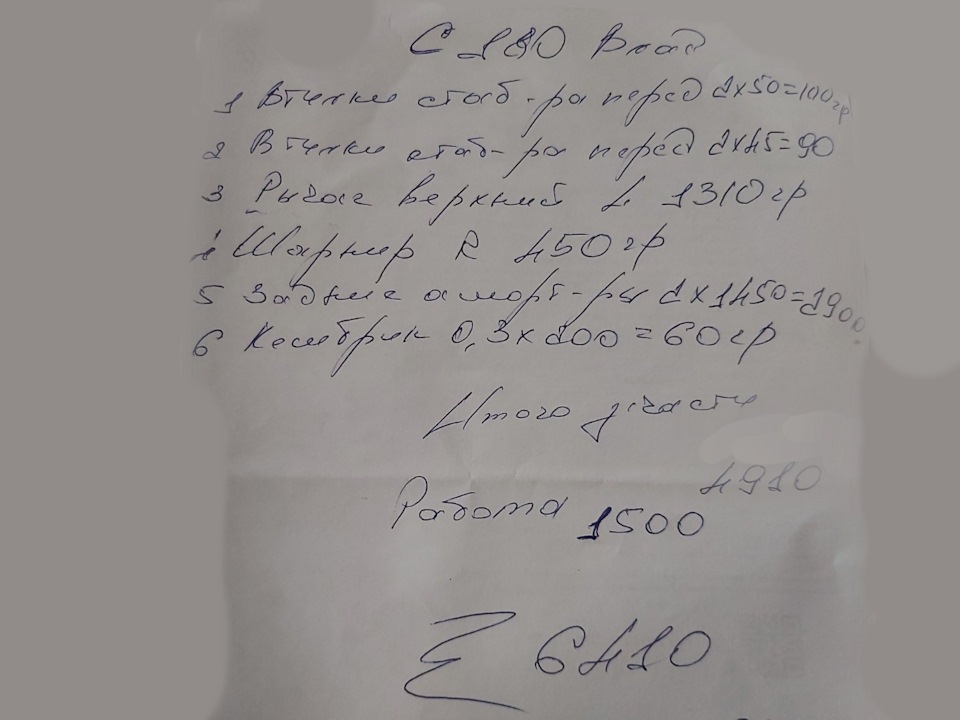 С 180 Влад
1 Втулки стаб-ра перед 2х50=100гр
2 Втулки стаб-ра перед 2х45=90
3 Рычаг верхний L 1310гр
4 Шарнир R 450гр
5 Задние аморт-ры 2х1450=2900
6 Кембрик 0,3х200=60гр
Итого з/части
4910
Работа 1500
Σ 6410